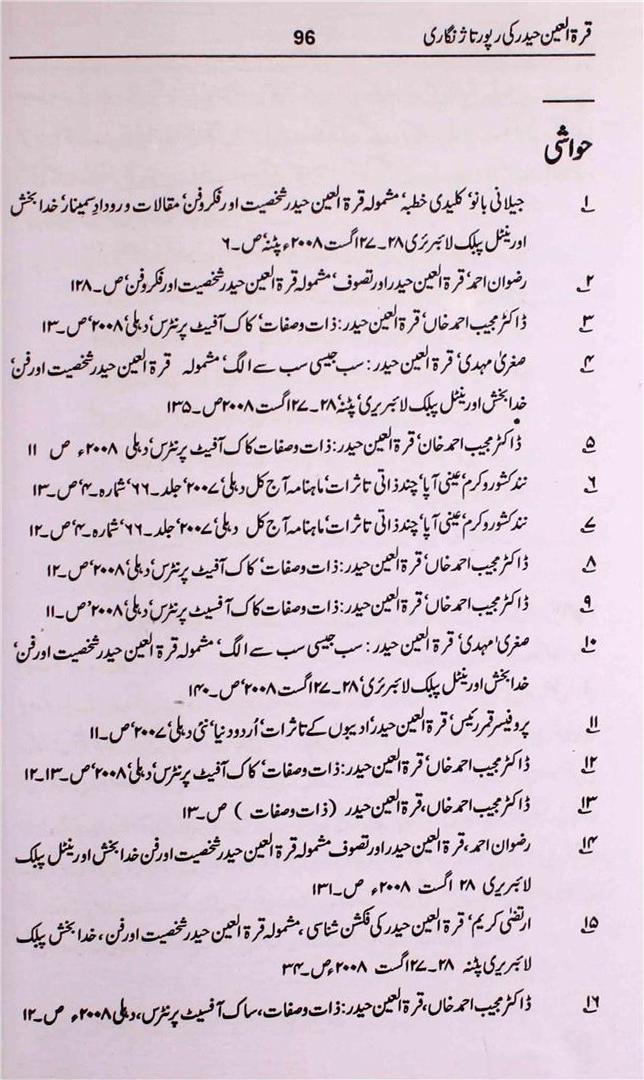 قرۃ العین حیدر کی رپورتاژ نگاری 96
حواشی
۱ جیلانی بانو٬ کلیدی خطبہ٬ مشمولہ قرۃ العین حیدر شخصیت اور فکر و فن٬ مقالات و رودادِ سمینار٬ خدا بخش
اورینٹل پبلک لائبریری ۲۸۔۲۷ اگست ۲۰۰۸ء پٹنہ٬ ص۔۶
۲ رضوان احمد٬ قرۃ العین حیدر اور تصوف٬ مشمولہ قرۃ العین حیدر شخصیت اور فکر و فن٬ ص۔۱۲۸
۳ ڈاکٹر مجیب احمد خاں٬ قرۃ العین حیدر: ذات و صفات٬ کاک آفیٹ پرنٹرس٬ دہلی٬ ۲۰۰۸٬ ص۔۱۳
۴ صغریٰ مہدی٬ قرۃ العین حیدر: سب جیسی سب سے الگ٬ مشمولہ قرۃ العین حیدر شخصیت اور فن٬
خدا بخش اورینٹل پبلک لائبریری٬ پٹنہ٬ ۲۸۔۲۷ اگست ۲۰۰۸ ص۔۱۳۵
۵ ڈاکٹر مجیب احمد خان٬ قرۃ العین حیدر: ذات و صفات کاک آفیٹ پرنٹرس٬ دہلی ۲۰۰۸ء ص ۱۱
۶ نند کشور وکرم٬ عینی آپا٬ چند ذاتی تاثرات٬ ماہنامہ آج کل دہلی٬ ۲۰۰۷ جلد۔۶۶٬ شمارہ۔۴٬ ص۔۱۳
۷ نند کشور وکرم٬ عینی آپا٬ چند ذاتی تاثرات٬ ماہنامہ آج کل دہلی٬ ۲۰۰۷ جلد۔۶۶٬ شمارہ۔۴٬ ص۔۱۲
۸ ڈاکٹر مجیب احمد خاں٬ قرۃ العین حیدر: ذات و صفات٬ کاک آفیٹ پرنٹرس٬ دہلی٬ ۲۰۰۸٬ ص۔۱۲
۹ ڈاکٹر مجیب احمد خاں٬ قرۃ العین حیدر: ذات و صفات کاک آفسیٹ پرنٹرس٬ دہلی٬ ۲۰۰۸٬ ص۔۱۱
۱۰ صغریٰ مہدی٬ قرۃ العین حیدر: سب جیسی سب سے الگ٬ مشمولہ قرۃ العین حیدر شخصیت اور فن٬
خدا بخش اورینٹل پبلک لائبریری٬ ۲۸۔۲۷ اگست ۲۰۰۸٬ ص۔۱۴۰
۱۱ پروفیسر قمر رئیس٬ قرۃ العین حیدر٬ ادیبوں کے تاثرات٬ اُردو دنیا٬ نئی دہلی٬ ۲۰۰۷٬ ص۔۱۱
۱۲ ڈاکٹر مجیب احمد خاں٬ قرۃ العین حیدر: ذات و صفات٬ کاک آفیٹ پرنٹرس٬ دہلی٬ ۲۰۰۸٬ ص۔۱۳۔۱۲
۱۳ ڈاکٹر مجیب احمد خاں، قرۃ العین حیدر (ذات و صفات) ص۔۱۳
۱۴ رضوان احمد، قرۃ العین حیدر اور تصوف مشمولہ قرۃ العین حیدر شخصیت اور فن خدا بخش اورینٹل پبلک
لائبریری ۲۸ اگست ۲۰۰۸ء ص۔۱۳۱
۱۵ ارتضیٰ کریم٬ قرۃ العین حیدر کی فکشن شناسی، مشمولہ قرۃ العین حیدر شخصیت اور فن، خدا بخش پبلک
لائبریری پٹنہ ۲۸۔۲۷ اگست ۲۰۰۸ء ص۔۳۴
۱۶ ڈاکٹر مجیب احمد خاں، قرۃ العین حیدر: ذات و صفات، ساک آفسیٹ پرنٹرس، دہلی ۲۰۰۸ء ص۔۱۲